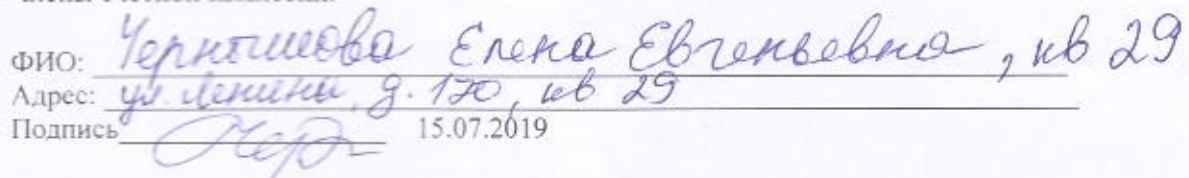 ФИО: Чернышова Елена Евгеньевна, кв 29
Адрес: ул. Ленина, д. 170, кв 29
Подпись 15.07.2019